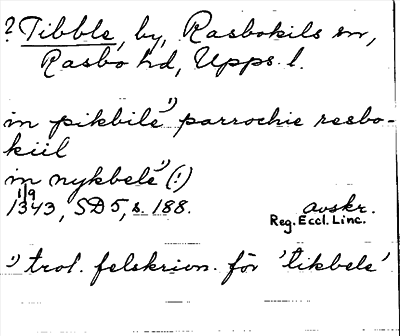 ? Tibble, by, Rasbokils sn,
Rasbo hd, Upps. l.
in pikbile¹⁾ parrochie resbo-
kiil
in nykbele¹⁾ (!)
1/9
1343, SD 5, s. 188.
avskr.
Reg. Eccl. Linc.
¹⁾ trol. felskrivn. för 'tikbele'